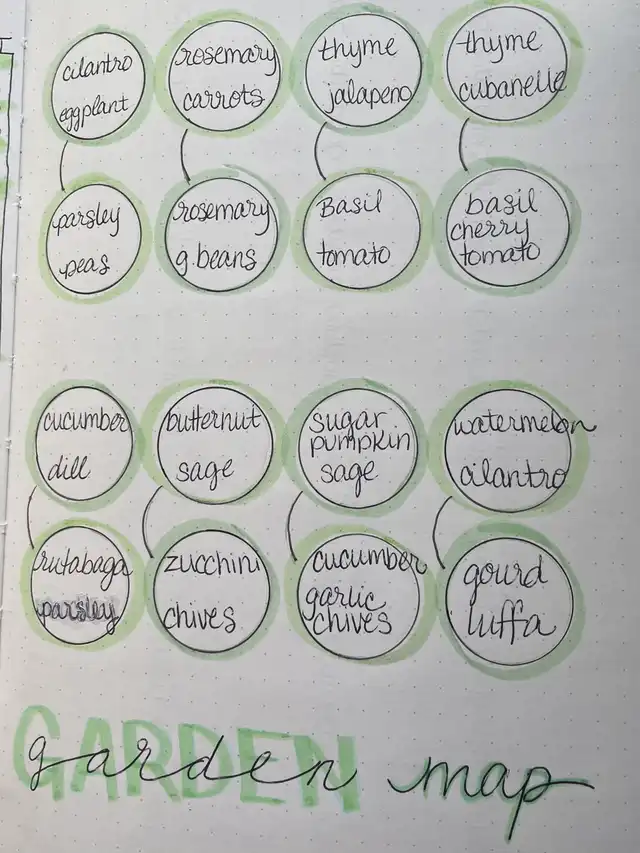 cilantro
eggplant
rosemary
carrots
thyme
jalapeno
thyme
cubanelle
parsley
peas
rosemary
g.beans
Basil
tomato
basil
cherry
tomato
cucumber
dill
butternut
sage
sugar
pumpkin
sage
watermelon
cilantro
rutabaga
parsley
zucchini
chives
cucumber
garlic
chives
gourd
luffa
GARDEN
garden map